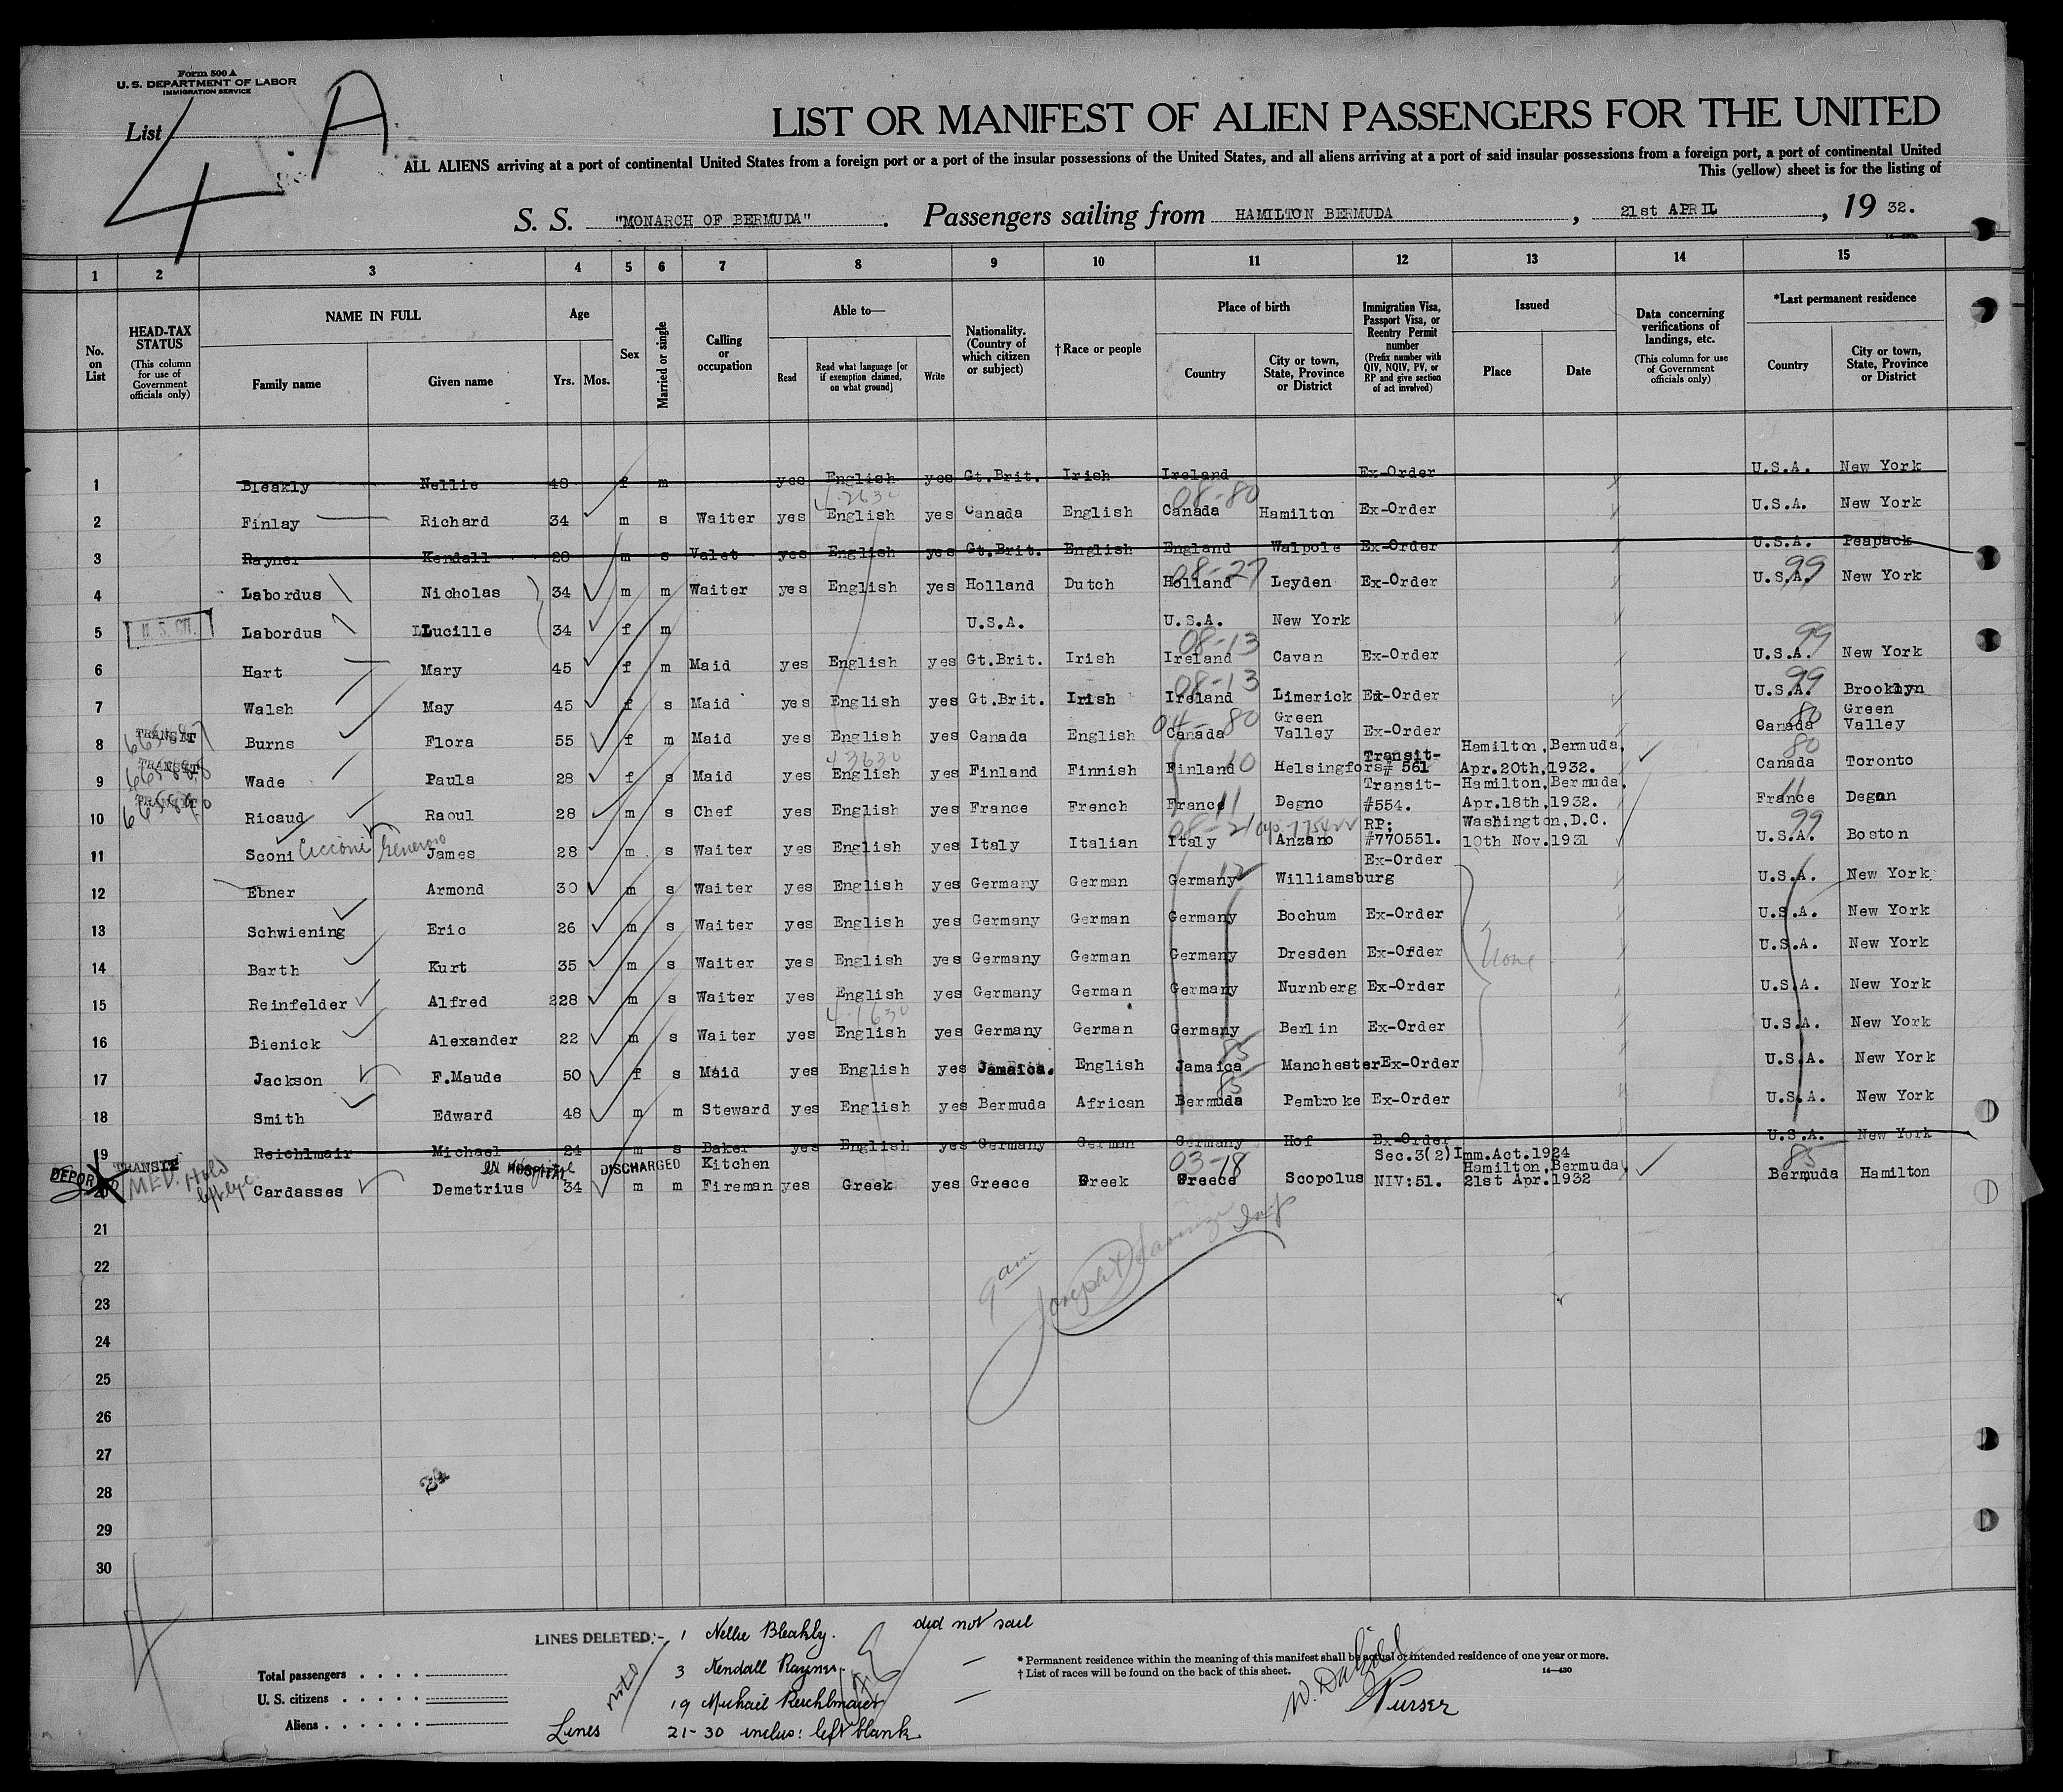 Form 500 A
U. S. DEPARTMENT OF LABOR
IMMIGRATION SERVICE
List 4 A
LIST OR MANIFEST OF ALIEN PASSENGERS FOR THE UNITED
ALL ALIENS arriving at a port of continental United States from a foreign port or a port of the insular possessions of the United States, and all aliens arriving at a port of said insular possessions from a foreign port, a port of continental United
This (yellow) sheet is for the listing of
S. S. "MONARCH OF BERMUDA". Passengers sailing from HAMILTON BERMUDA, 21st APRIL, 19 32.
1 2 3 4 5 6 7 8 9 10 11 12 13 14 15
No. on List
HEAD-TAX STATUS (This column for use of Government officials only)
NAME IN FULL Family name Given name
Age Yrs. Mos.
Sex
Married or single
Calling or occupation
Able to— Read Read what language [or if exemption claimed, on what ground] Write
Nationality. (Country of which citizen or subject)
†Race or people
Place of birth Country City or town, State, Province or District
Immigration Visa, Passport Visa, or Reentry Permit number (Prefix number with QIV, NQIV, PV, or RP and give section of act involved)
Issued Place Date
Data concerning verifications of landings, etc. (This column for use of Government officials only)
*Last permanent residence Country City or town, State, Province or District
1 Bleakly Nellie 48 f m yes English yes Gt.Brit. Irish Ireland Ex-Order U.S.A. New York
4-2630 08-80
2 Finlay Richard 34 m s Waiter yes English yes Canada English Canada Hamilton Ex-Order U.S.A. New York
3 Rayner Kendall 28 m s Valet yes English yes Gt.Brit. English England Walpole Ex-Order U.S.A. Peapack
08-27 99
4 Labordus Nicholas 34 m m Waiter yes English yes Holland Dutch Holland Leyden Ex-Order U.S.A. New York
5 U.S. CIT. Labordus Lucille 34 f m U.S.A. U.S.A. New York
08-13 99
6 Hart Mary 45 f m Maid yes English yes Gt.Brit. Irish Ireland Cavan Ex-Order U.S.A. New York
08-13 99
7 Walsh May 45 f s Maid yes English yes Gt.Brit. Irish Ireland Limerick Ex-Order U.S.A. Brooklyn
04-80 80
8 TRANSIT Burns Flora 55 f m Maid yes English yes Canada English Canada Green Valley Ex-Order Canada Green Valley
43630 10 80
9 TRANSIT Wade Paula 28 f s Maid yes English yes Finland Finnish Finland Helsingfors Transit-# 561 Hamilton,Bermuda, Apr.20th,1932. Canada Toronto
10 TRANSIT Ricaud Raoul 28 m s Chef yes English yes France French France 11 Degno Transit-#554. Hamilton,Bermuda, Apr.18th,1932. France 11 Degon
08-21 99
11 Sconi Ciccone Generoso James 28 m s Waiter yes English yes Italy Italian Italy Anzano RP; #770551. Washington,D.C. 10th Nov.1931 U.S.A. Boston
12 Ebner Armond 30 m s Waiter yes English yes Germany German Germany 12 Williamsburg Ex-Order U.S.A. New York
13 Schwiening Eric 26 m s Waiter yes English yes Germany German Germany Bochum Ex-Order U.S.A. New York
14 Barth Kurt 35 m s Waiter yes English yes Germany German Germany Dresden Ex-Order None U.S.A. New York
15 Reinfelder Alfred 228 m s Waiter yes English yes Germany German Germany Nurnberg Ex-Order U.S.A. New York
4-1630
16 Bienick Alexander 22 m s Waiter yes English yes Germany German Germany Berlin Ex-Order U.S.A. New York
85
17 Jackson F.Maude 50 f s Maid yes English yes Jamaica. English Jamaica Manchester Ex-Order U.S.A. New York
85
18 Smith Edward 48 m m Steward yes English yes Bermuda African Bermuda Pembroke Ex-Order U.S.A. New York
19 Reichlmair Michael 24 m s Baker yes English yes Germany German Germany Hof Ex-Order U.S.A. New York
DEPORTED TRANSIT MED. Hold IN HOSPITAL DISCHARGED 03-18 85
20 Cardasses Demetrius 34 m m Kitchen Fireman yes Greek yes Greece Greek Greece Scopolus Sec.3(2)Imm.Act.1924 NIV:51. Hamilton,Bermuda, 21st Apr.1932 Bermuda Hamilton
21
22
23
24
25
26
27
28
29
30
9 am
24
LINES DELETED:- 1 Nellie Bleakly. did not sail
3 Kendall Rayner. —
19 Michael Reichlmaier —
Lines 21-30 inclus: left blank
Total passengers
U. S. citizens
Aliens
* Permanent residence within the meaning of this manifest shall be actual or intended residence of one year or more.
† List of races will be found on the back of this sheet.
14—430
Purser